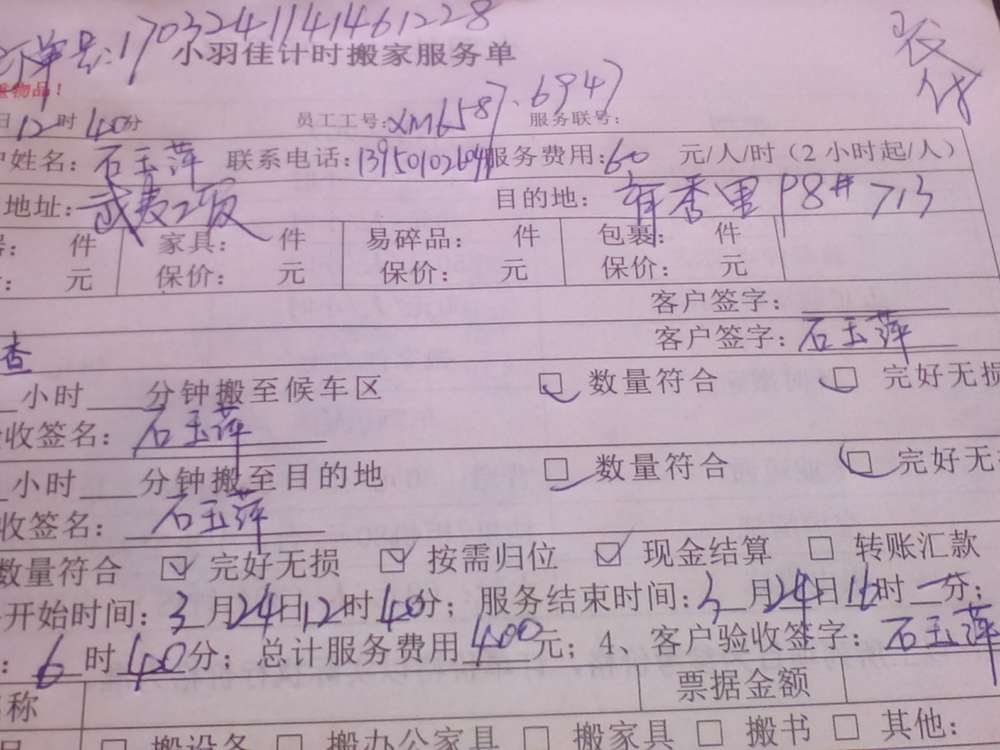 订单号:170324114146 1228
小羽佳计时搬家服务单
重物品!
日12时40分 员工工号:XM6587、6947 服务联号:
户姓名:石玉萍 联系电话:13950102604 服务费用:60 元/人/时(2小时起/人)
地址:武夷工贸 目的地:育秀里98#713
件 家具: 件 易碎品: 件 包裹: 件
元 保价: 元 保价: 元 保价: 元
客户签字:
查 客户签字:石玉萍
小时 分钟搬至候车区 □ 数量符合 □ 完好无损
收签名:石玉萍
小时 分钟搬至目的地 □ 数量符合 □ 完好无
收签名:石玉萍
数量符合 ☑ 完好无损 ☑ 按需归位 ☑ 现金结算 □ 转账汇款
开始时间:3月24日12时40分;服务结束时间:3月24日16时一分;
:6时40分;总计服务费用400元;4、客户验收签字:石玉萍
称 票据金额
□ 搬设备 □ 搬办公家具 □ 搬家具 □ 搬书 □ 其他: